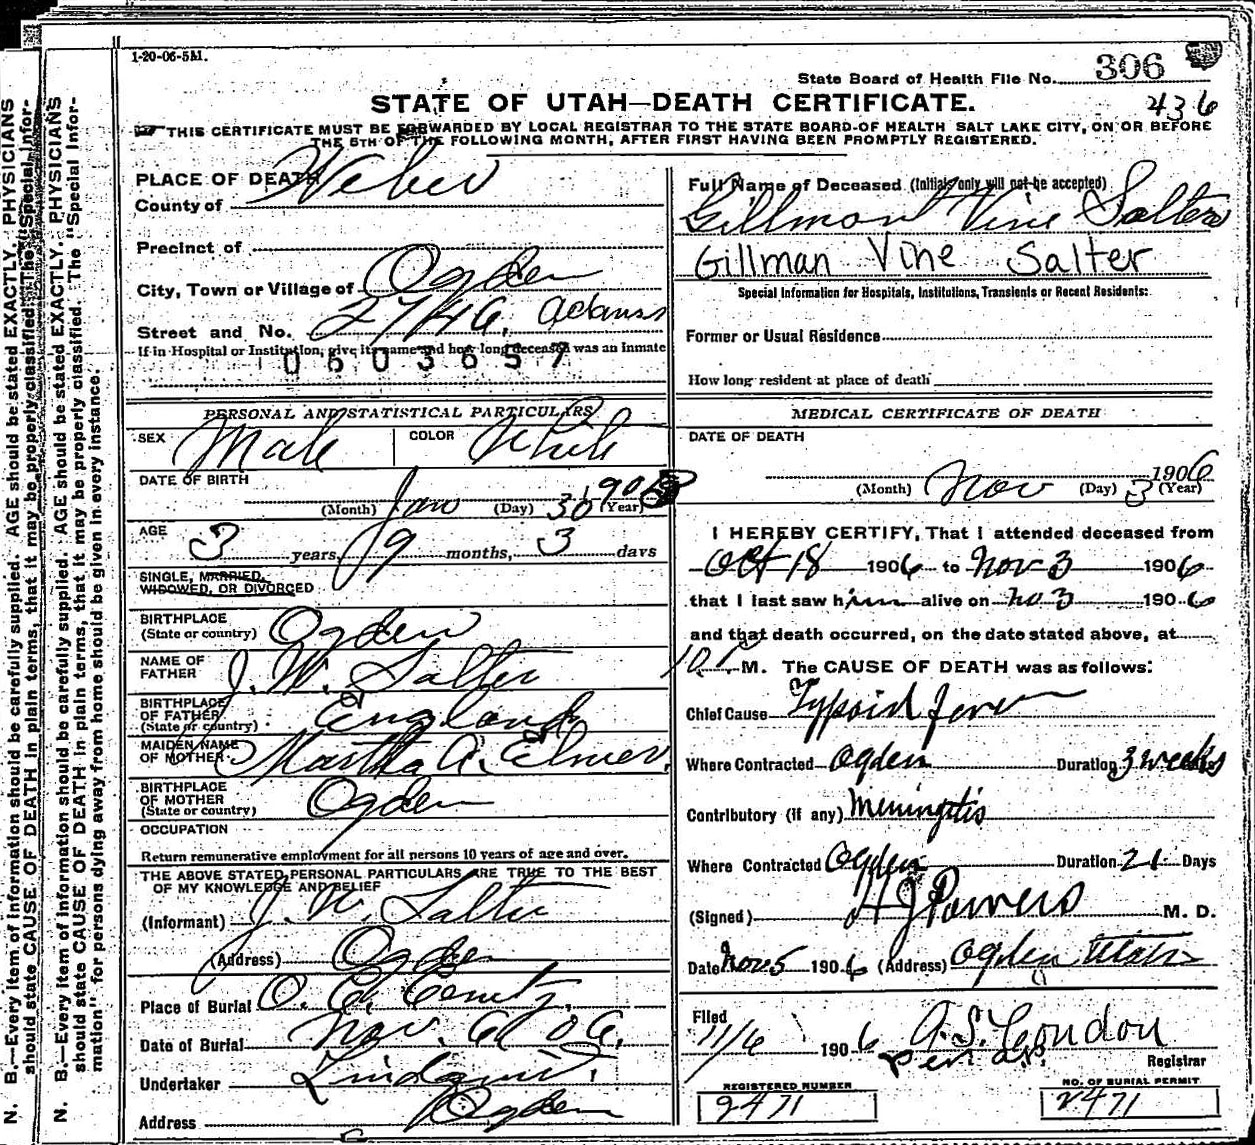 1-20-06-5M.
State Board of Health File No. 306
STATE OF UTAH—DEATH CERTIFICATE.
436
THIS CERTIFICATE MUST BE FORWARDED BY LOCAL REGISTRAR TO THE STATE BOARD OF HEALTH SALT LAKE CITY, ON OR BEFORE
THE 5TH OF THE FOLLOWING MONTH, AFTER FIRST HAVING BEEN PROMPTLY REGISTERED.
N. B.—Every item of information should be carefully supplied. AGE should be stated EXACTLY. PHYSICIANS
should state CAUSE OF DEATH in plain terms, that it may be properly classified. The "Special Infor-
N. B.—Every item of information should be carefully supplied. AGE should be stated EXACTLY. PHYSICIANS
should state CAUSE OF DEATH in plain terms, that it may be properly classified. The "Special Infor-
mation" for persons dying away from home should be given in every instance.
PLACE OF DEATH
County of Weber
Precinct of
City, Town or Village of Ogden
Street and No. 2746 Adams
If in Hospital or Institution, give its name and how long deceased was an inmate
0603657
PERSONAL AND STATISTICAL PARTICULARS
SEX Male COLOR White
DATE OF BIRTH
(Month) Jan (Day) 30 (Year) 903
AGE 3 years, 9 months, 3 days
SINGLE, MARRIED,
WIDOWED, OR DIVORCED
BIRTHPLACE
(State or country) Ogden
NAME OF
FATHER J. W. Salter
BIRTHPLACE
OF FATHER
(State or country) England
MAIDEN NAME
OF MOTHER Martha A. Elmer.
BIRTHPLACE
OF MOTHER
(State or country) Ogden
OCCUPATION
Return remunerative employment for all persons 10 years of age and over.
THE ABOVE STATED PERSONAL PARTICULARS ARE TRUE TO THE BEST
OF MY KNOWLEDGE AND BELIEF
(Informant) J. W. Salter
(Address) Ogden
Place of Burial O. C. Cemty.
Date of Burial Nov. 6 06.
Undertaker Lindquist.
Address Ogden
Full Name of Deceased (Initials only will not be accepted)
Gillmon Vine Salter
Gillman Vine Salter
Special Information for Hospitals, Institutions, Transients or Recent Residents:
Former or Usual Residence
How long resident at place of death
MEDICAL CERTIFICATE OF DEATH
DATE OF DEATH
(Month) Nov (Day) 3 1906 (Year)
I HEREBY CERTIFY, That I attended deceased from
Oct 18 1906 to Nov 3 1906
that I last saw him alive on No 3 1906
and that death occurred, on the date stated above, at
M. The CAUSE OF DEATH was as follows:
Chief Cause Typoid fever
Where Contracted Ogden Duration 3 weeks
Contributory (if any) Meningitis
Where Contracted Ogden Duration 21 Days
(Signed) H J Powers M. D.
Date Nov 5 1906 (Address) Ogden Utah
Filed
11/6 1906 A. S. Condon
Registrar
REGISTERED NUMBER
2471
NO. OF BURIAL PERMIT
2471